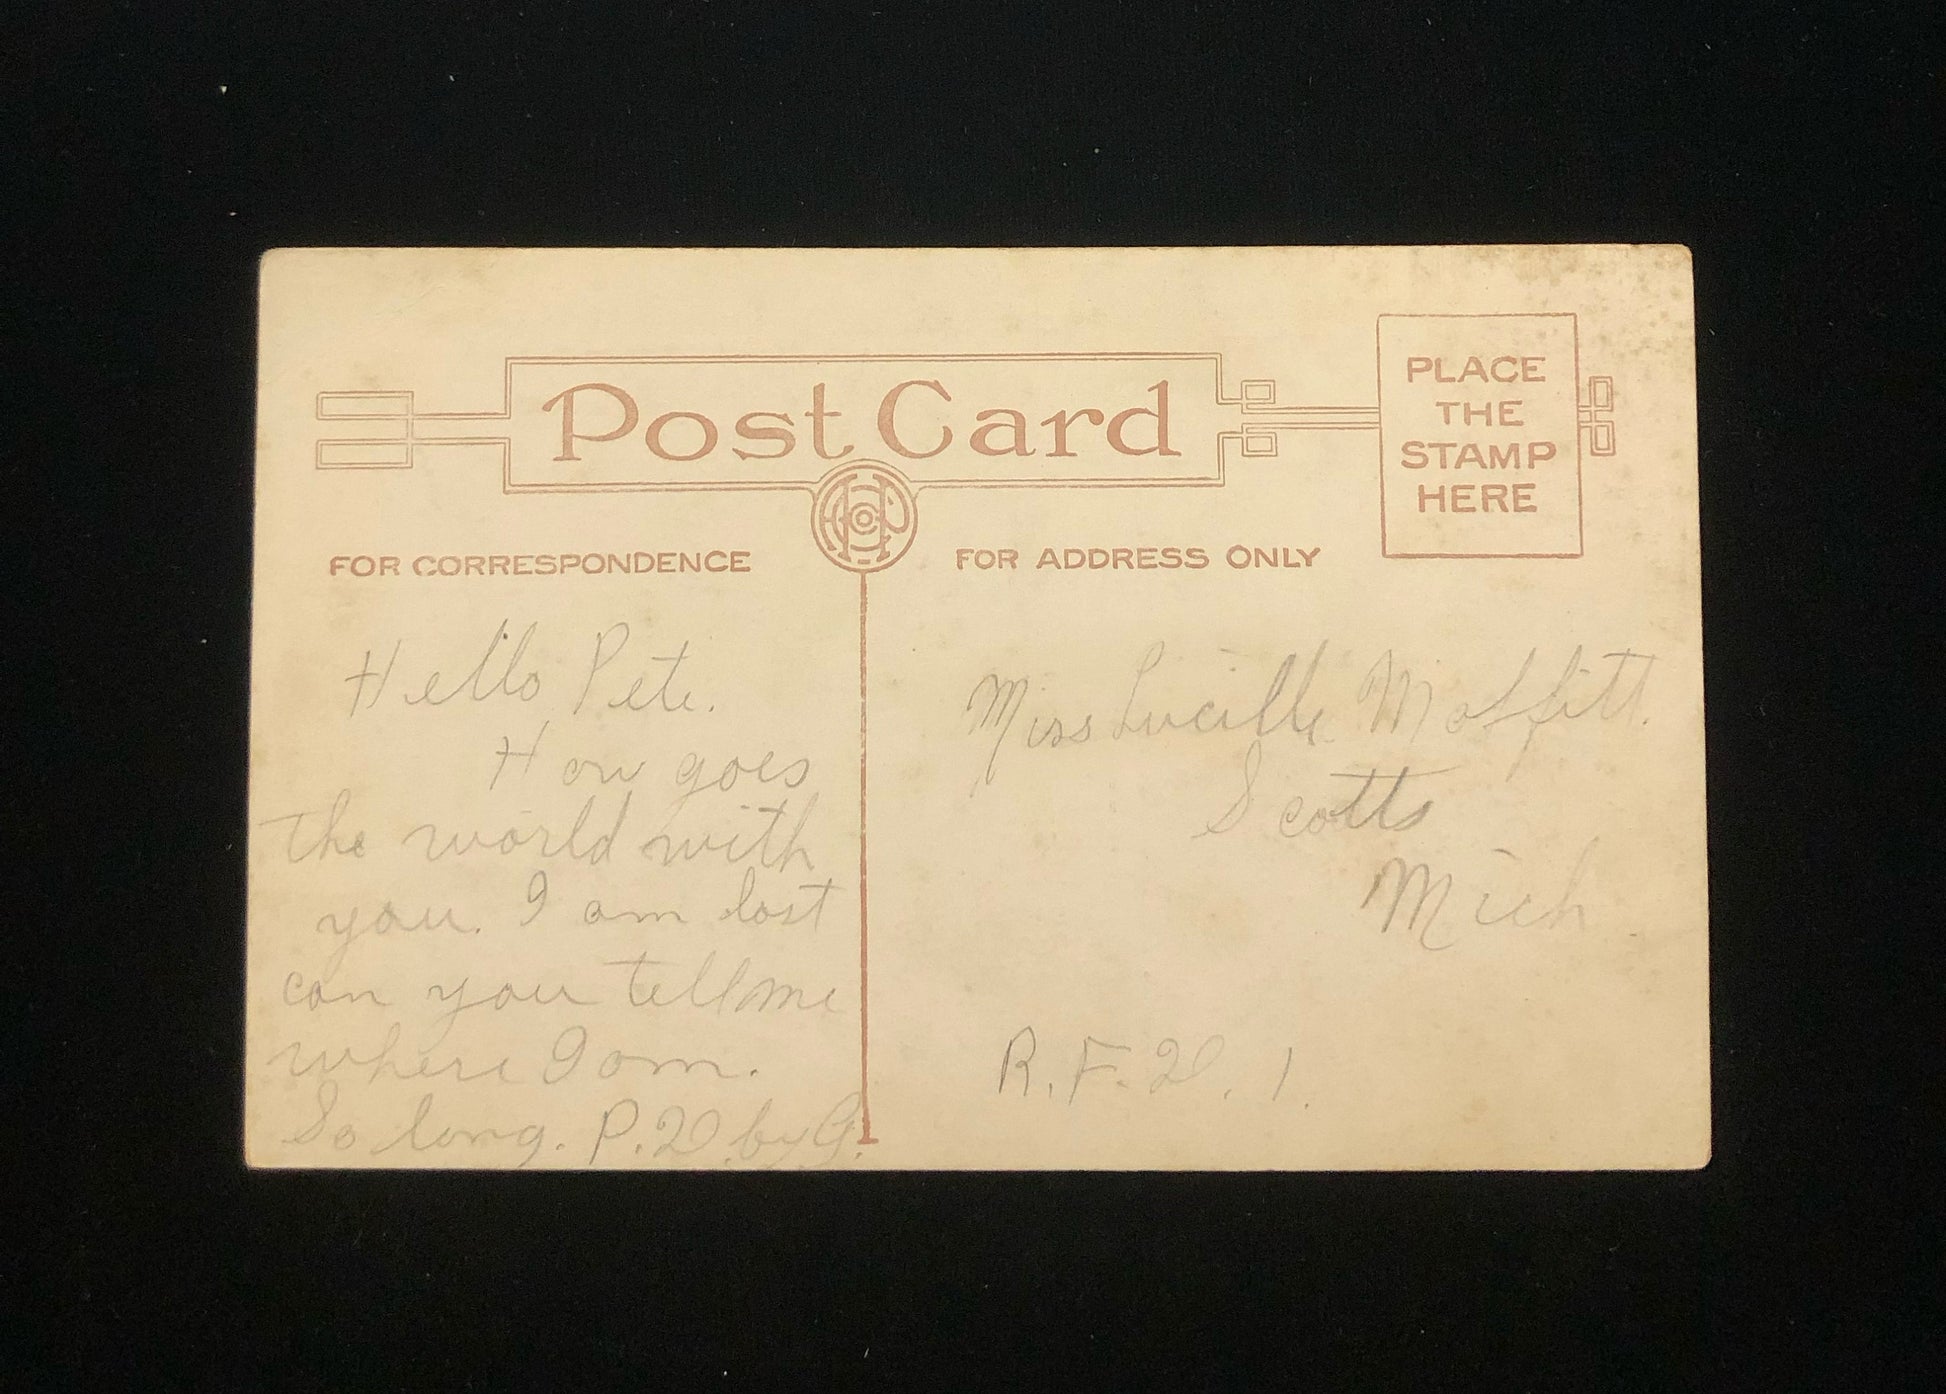 Post Card
PLACE
THE
STAMP
HERE
FOR CORRESPONDENCE
FOR ADDRESS ONLY
Hello Pete.
How goes
the world with
you. I am lost
can you tell me
where I am.
So long. P.D. by G.
Miss Lucille Moffitt.
Scotts
Mich.
R.F.D. 1.